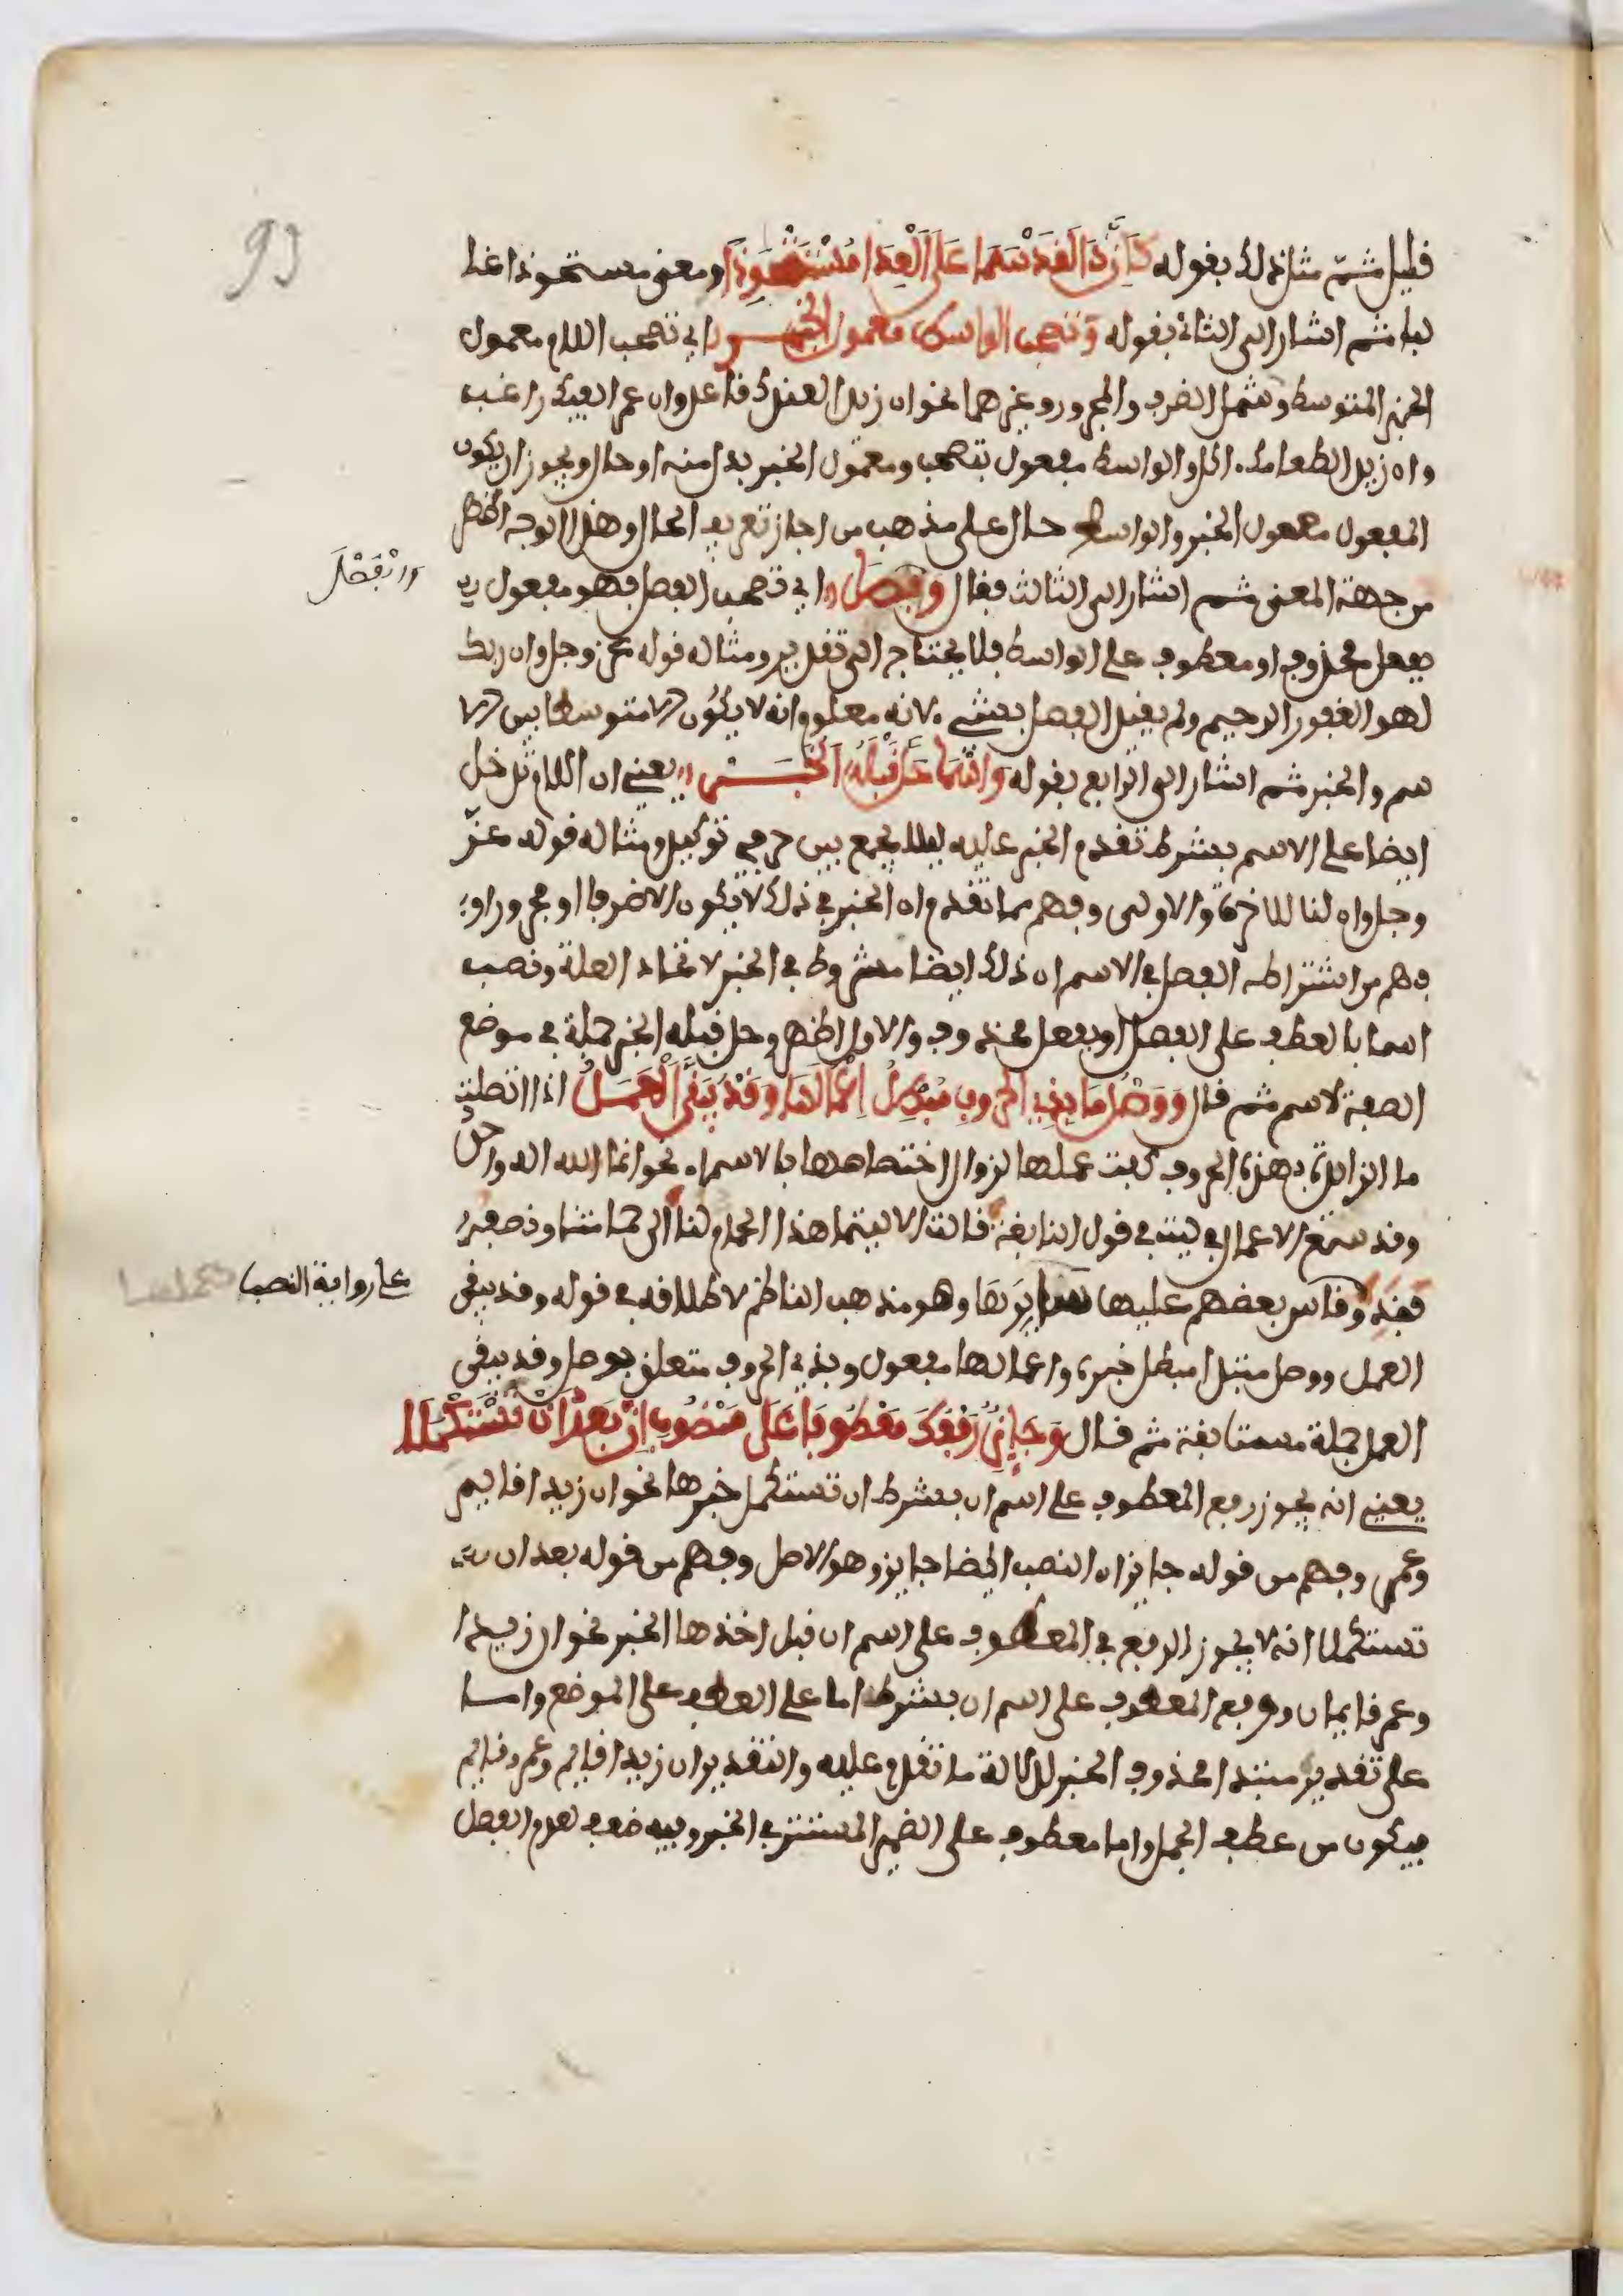 93
قليل ثم مثل ذلك بقوله كإن ذا لقد سما على العدا مستحوذا ومعنى مستحوذا غا
لبا ثم اشار الى الثاني بقوله وتصحب الواسط معمول الخبر اي تصحب اللام معمول
الخبر المتوسط وشمل الضرف والمجرور وغيرهما نحو ان زيدا لعندك قاعد وان عمرا لفيك راغب
وان زيدا لطعامك ءاكل والواسط مفعول بتصحب ومعمول الخبر بدل منه او حال ويجوز ان يكون
المفعول معمول الخبر والواسط حال على مذهب من اجاز تعريف الحال وهذا الوجه اظهر
من جهة المعنى ثم اشار الى الثالث فقال والفصل اي تصحب الفصل فهو مفعول
والفصل
بفعل محذوف او معطوف على الواسط فلا يحتاج الى تقدير ومثاله قوله عز وجل وان ربك
لهو الغفور الرحيم ولم يقيد الفصل بشيء لانه معلوم انه لا يكون الا متوسطا بين الا
سم والخبر ثم اشار الى الرابع بقوله واسما حل قبله الخبر يعني ان اللام تدخل
ايضا على الاسم بشرط تقدم الخبر عليه ليلا يجمع بين حرفي توكيد ومثاله قوله عز
وجل وان لنا للاخرة والاولى وفهم مما تقدم ان الخبر في ذلك لا يكون الا ضرفا او مجرورا و
فهم من اشتراطه الفصل في الاسم ان ذلك ايضا مشروط في الخبر لاتحاد العلة ونصب
اسما بالعطف على الفصل او بفعل محذوف والاول اظهر وحل قبله الخبر جملة في موضع
الصفة لاسم ثم قال ووصل ما بذي الحروف مبطل اعمالها وقد يبقى العمل اذا اتصلت
ما الزايدة بهذه الحروف كفت عملها لزوال اختصاصها بالاسماء نحو انما الله اله واحد
وقد سمع الاعمال في ليت في قول النابغة قالت الا ليتما هذا الحمام لنا الى حمامتنا ونصفه
فقد وقاس بعضهم عليها سايرها وهو مذهب الناظم لاطلاقه في قوله وقد يبقى
على رواية النصب
العمل ووصل مبتدا مبطل خبره واعمالها مفعول وبذي الحروف متعلق بوصل وقد يبقى
العمل جملة مستانفة ثم قال وجائز رفعك معطوفا على منصوب ان بعد ان تستكملا
يعني انه يجوز رفع المعطوف على اسم ان بشرط ان تستكمل خبرها نحو ان زيدا قايم
وعمر وفهم من قوله جايز ان النصب ايضا جايز وهو الاصل وفهم من قوله بعد ان
تستكملا انه لا يجوز الرفع في المعطوف على اسم ان قبل اخذها الخبر نحو ان زيدا
وعمر قايمان ورفع المعطوف على اسم ان بشرطه اما على العطف على الموضع واما
على تقدير مبتدا محذوف الخبر لدلالة ما تقدم عليه والتقدير ان زيدا قايم وعمرو قايم
فيكون من عطف الجمل واما معطوف على الضمير المستتر في الخبر وفيه ضعف لعدم الفصل